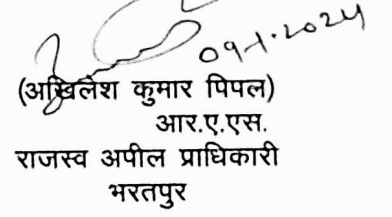 09-1-2024
(अखिलेश कुमार पिपल)
आर.ए.एस.
राजस्व अपील प्राधिकारी
भरतपुर